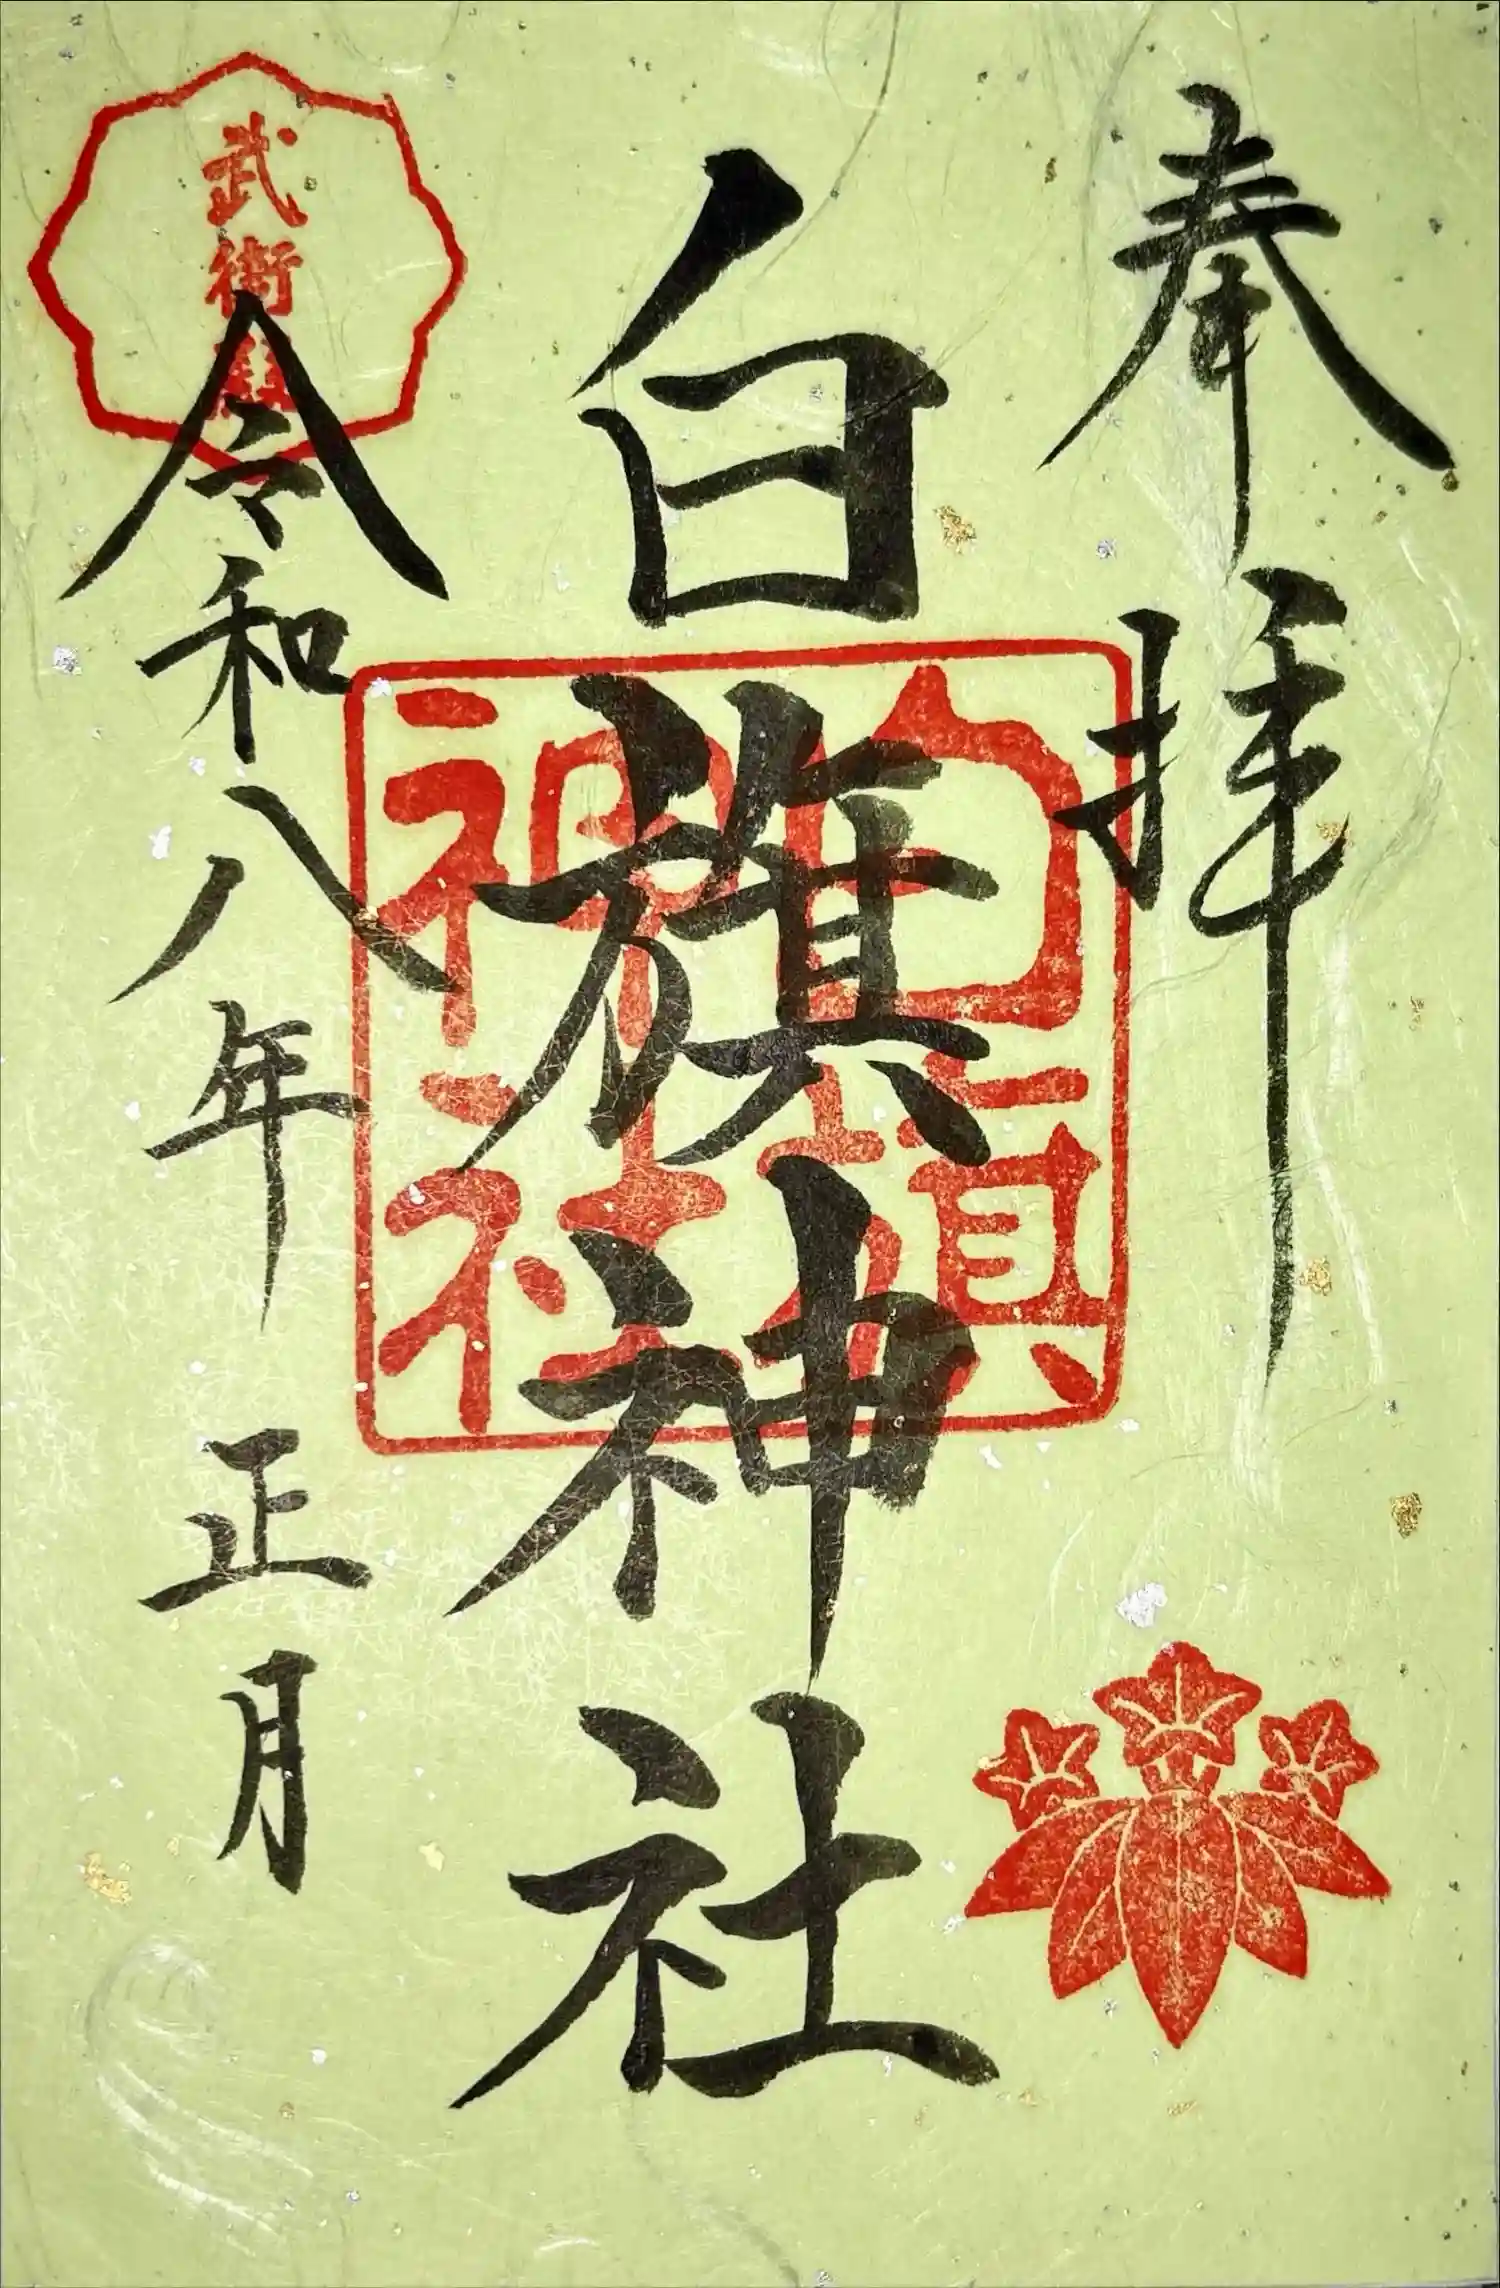 奉拝
白旗神社
白旗神社
令和八年 正月
武術